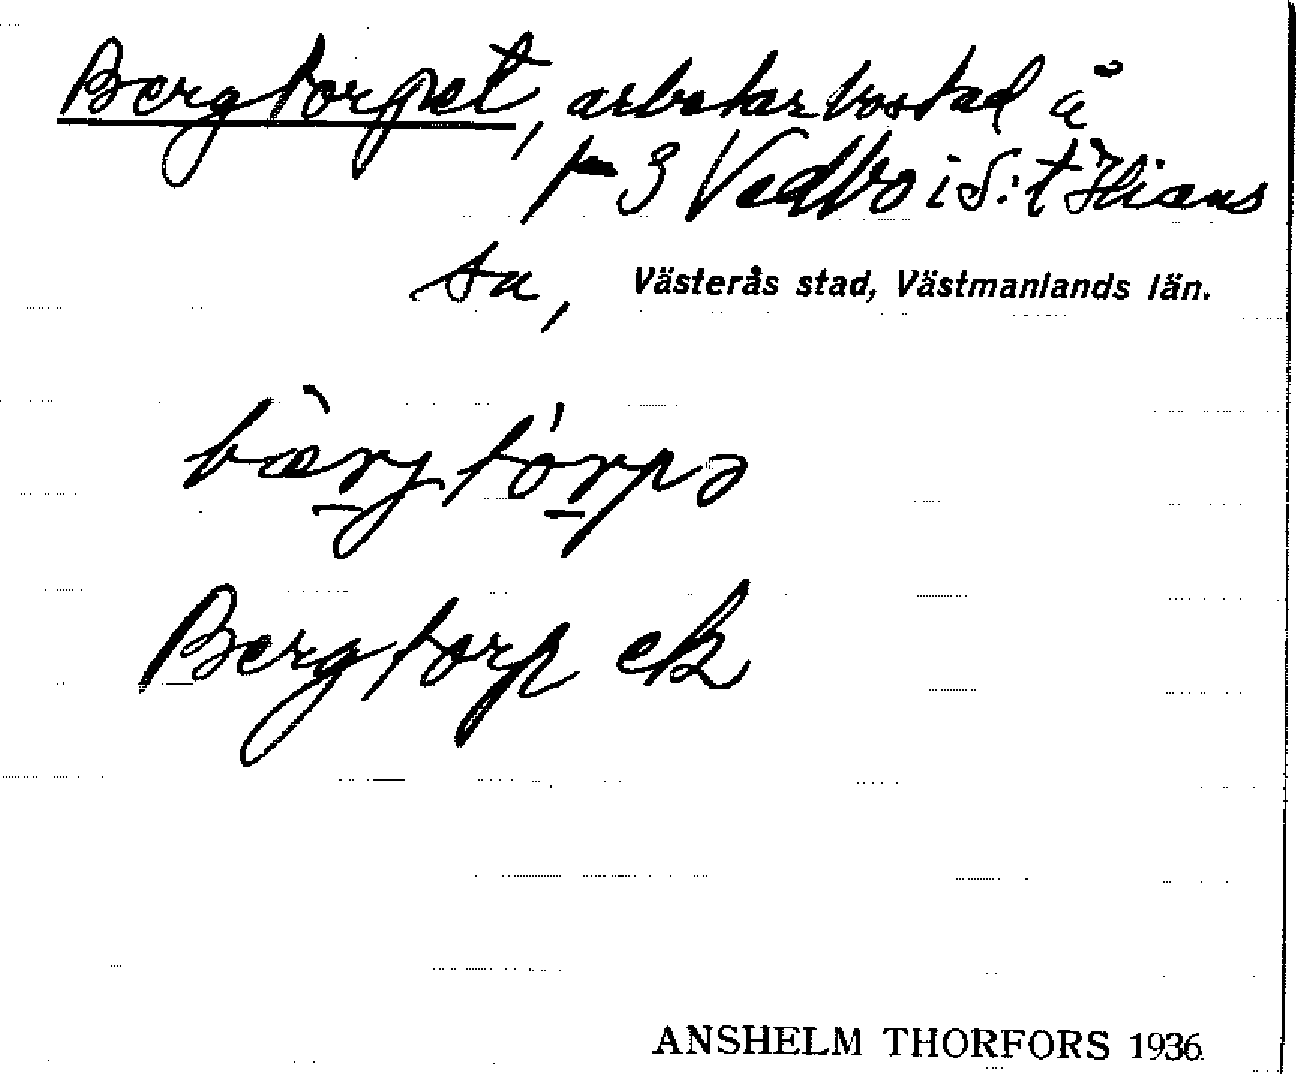 Bergtorpet, arbetarbostad å
r 3 Vedbo i S:t Ilians
sn,
Västerås stad, Västmanlands län.
bæ̀rjtórpə
Bergtorp ek
ANSHELM THORFORS 1936